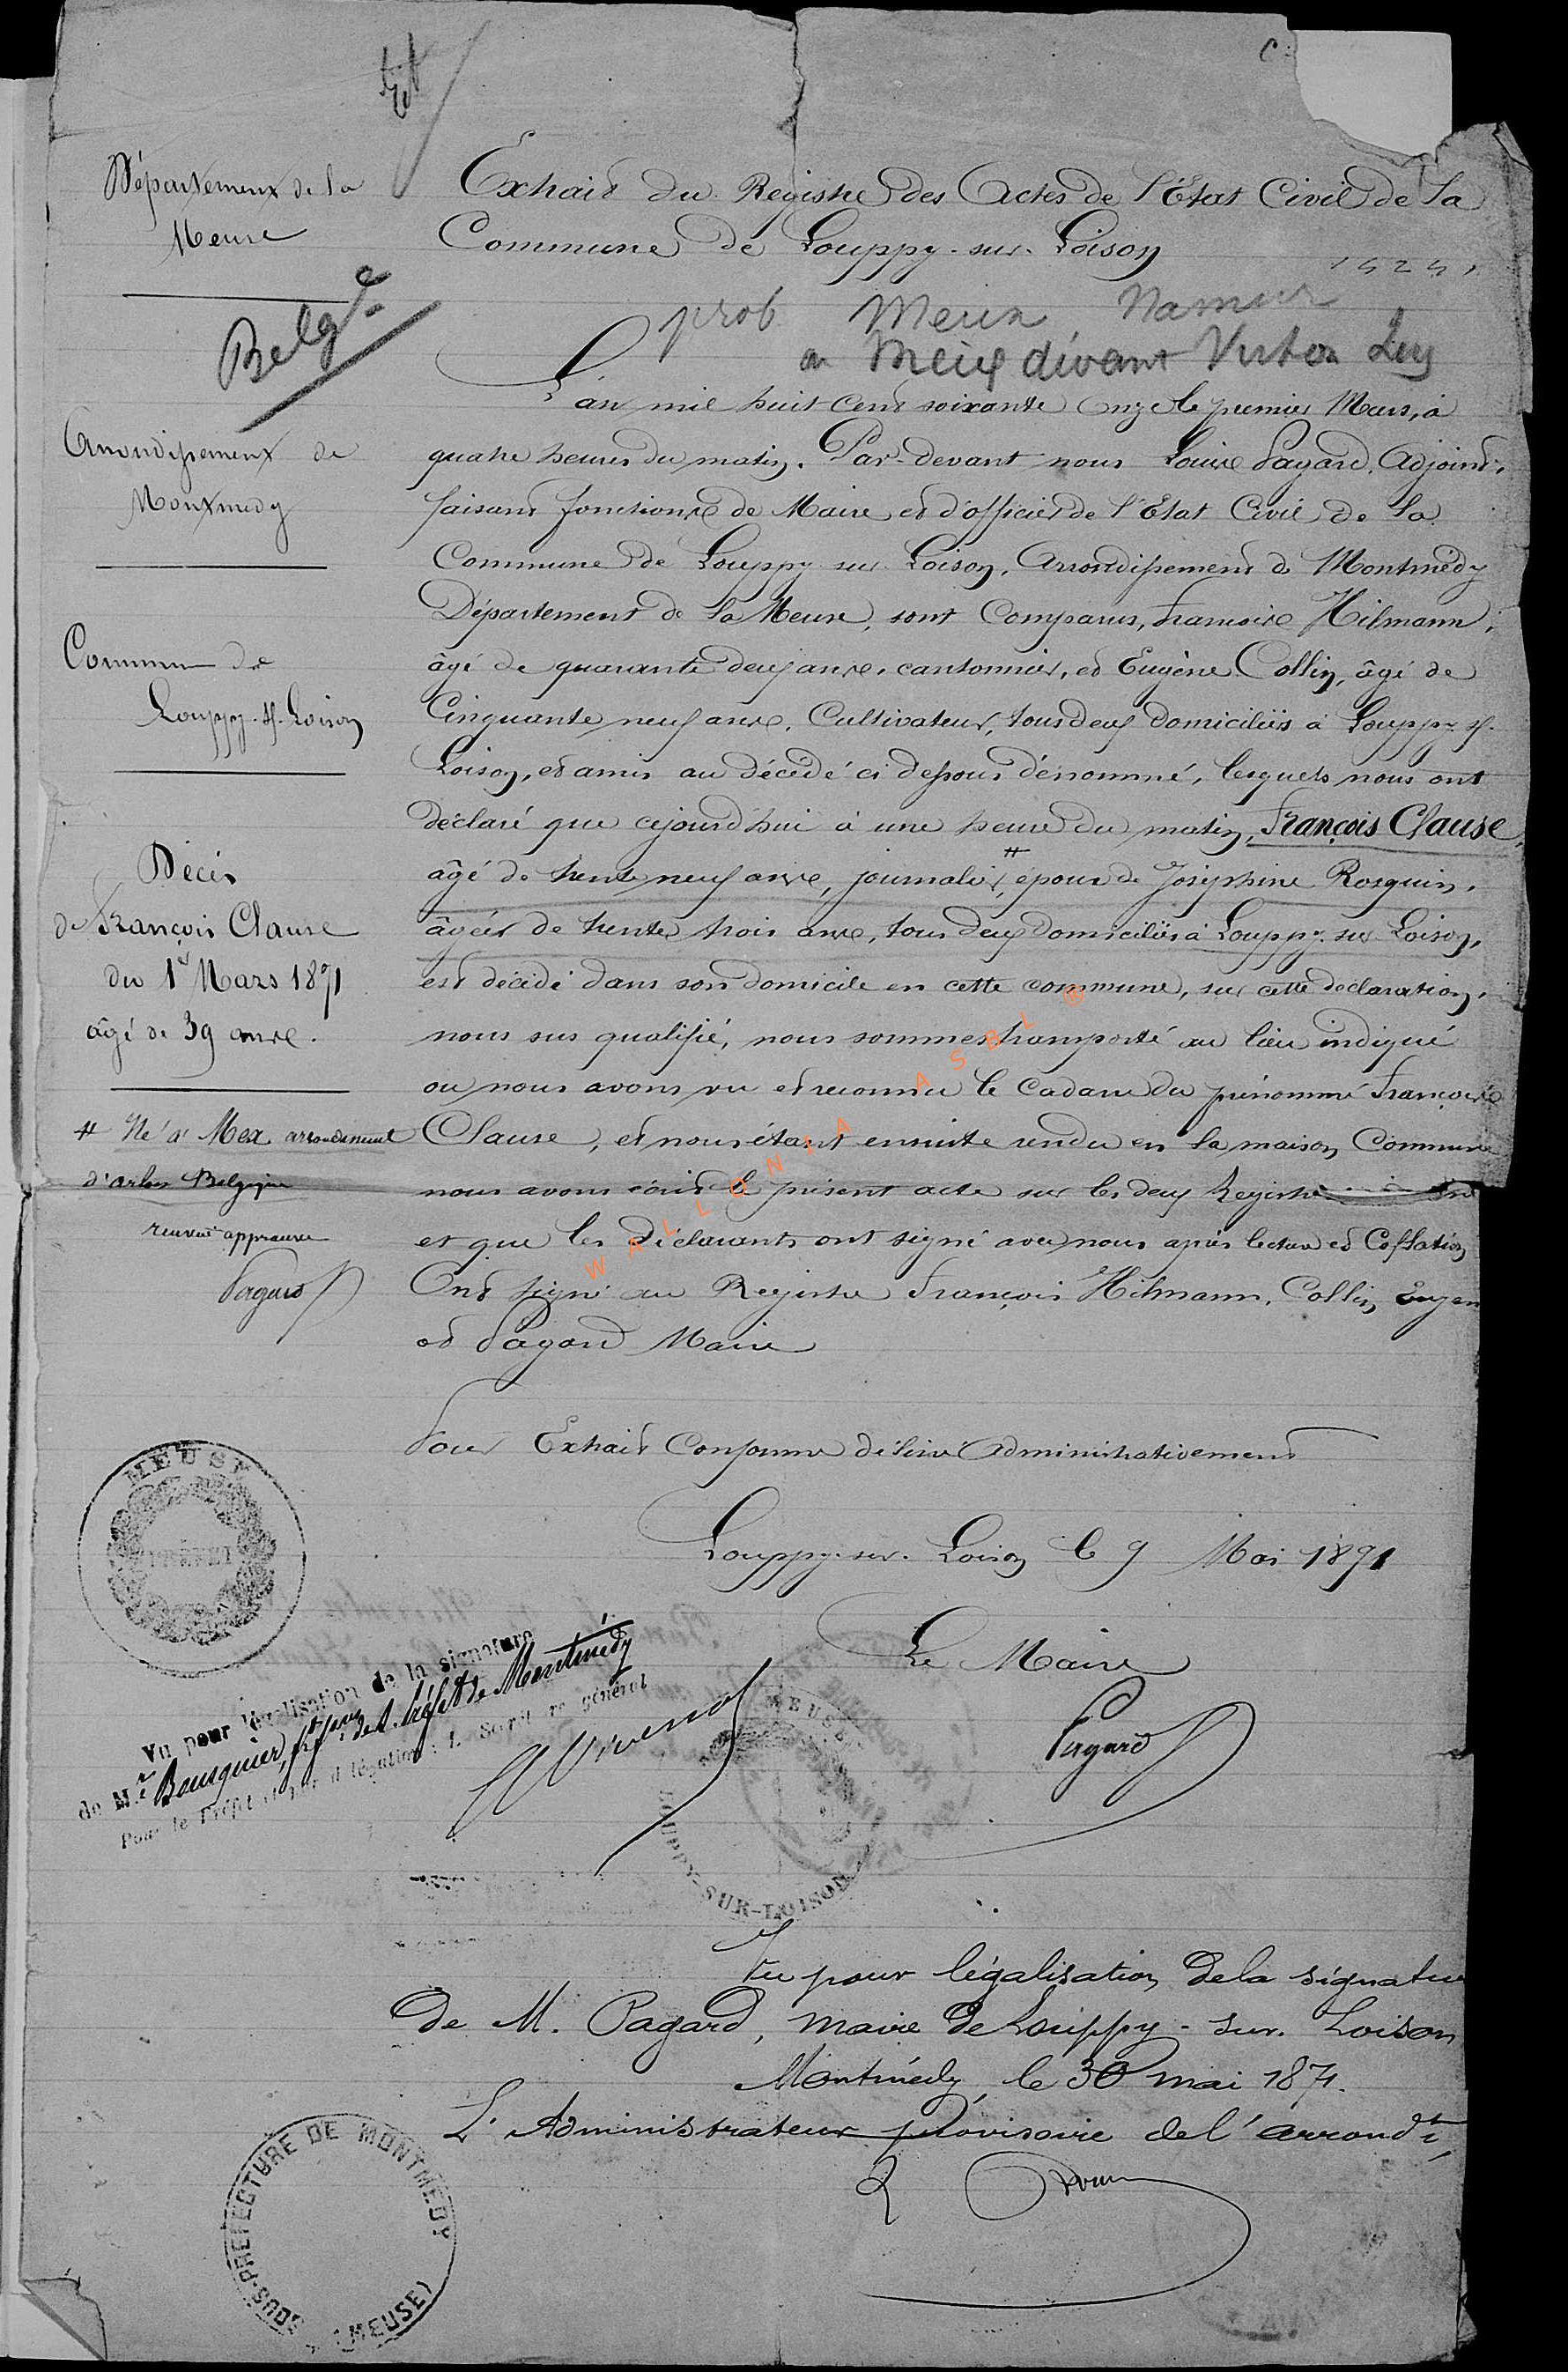 Département de la
Meuse
Belg.
Arrondissement de
Montmédy
Commune de
Louppy s/ Loison
Décès
de François Clause
du 1er Mars 1871
âgé de 39 ans.
# Né à Mex arrondiment
d'arlon Belgique
renvoi approuvé
Pagard
Extrait du Registre des Actes de l'Etat Civil de la
Commune de Louppy-sur-Loison
prob Meux Namur
ou Meix devant Virton Lux
L'an mil huit cent soixante onze le premier Mars, à
quatre heures du matin. Par-devant nous Louis Pagard, Adjoint,
faisant fonctions de Maire et d'officier de l'Etat Civil de la
Commune de Louppy sur Loison, Arrondissement de Montmédy
Département de la Meuse, sont Comparus, François Hilmann,
âgé de quarante deux ans, cantonnier, et Eugène Collin, âgé de
Cinquante neuf ans, Cultivateur, tous deux domiciliés à Louppy s/.
Loison, et amis au décédé ci dessous dénommé, lesquels nous ont
déclaré que cejourd'hui à une heure du matin, François Clause,
âgé de trente neuf ans, journalier, # époux de Joséphine Rosquin,
âgée de trente trois ans, tous deux domiciliés à Louppy sur Loison,
est décédé dans son domicile en cette commune, sur cette déclaration,
nous sus qualifié, nous sommes transporté au lieu indiqué
ou nous avons vu et reconnu le Cadavre du prénommé François
Clause, et nous étant ensuite rendu en la maison Commune
nous avons écrit le présent acte sur les deux Registres
et que les Déclarants ont signé avec nous après lecture et Collation
Ont signé au Registre François Hilmann, Collin Eugen
et Pagard Maire
Pour Extrait Conforme délivré Administrativement
Louppy-sur-Loison le 9 Mai 1871
Le Maire
Pagard
MEUSE
PRÉFET
Vu pour légalisation de la signature
de Mr. Bousquier, de S. Préfet de Montmédy
Pour le Préfet et par délégation : Le Secrétaire général
MEUSE
LOUPPY-SUR-LOISON
Vu pour légalisation de la signature
de M. Pagard, maire de Louppy-sur-Loison
Montmédy, le 30 mai 1871.
L'Administrateur provisoire de l'arrondt,
SOUS-PREFECTURE DE MONTMEDY
(MEUSE)
WALLONIA ASBL